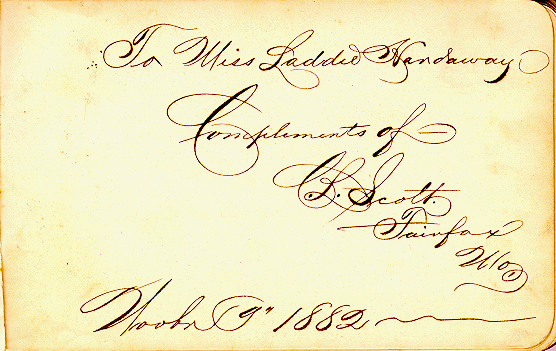 To Miss Laddie Handaway
Compliments of
B. Scott.
Fairfax
Mo
Novbr 9" 1882